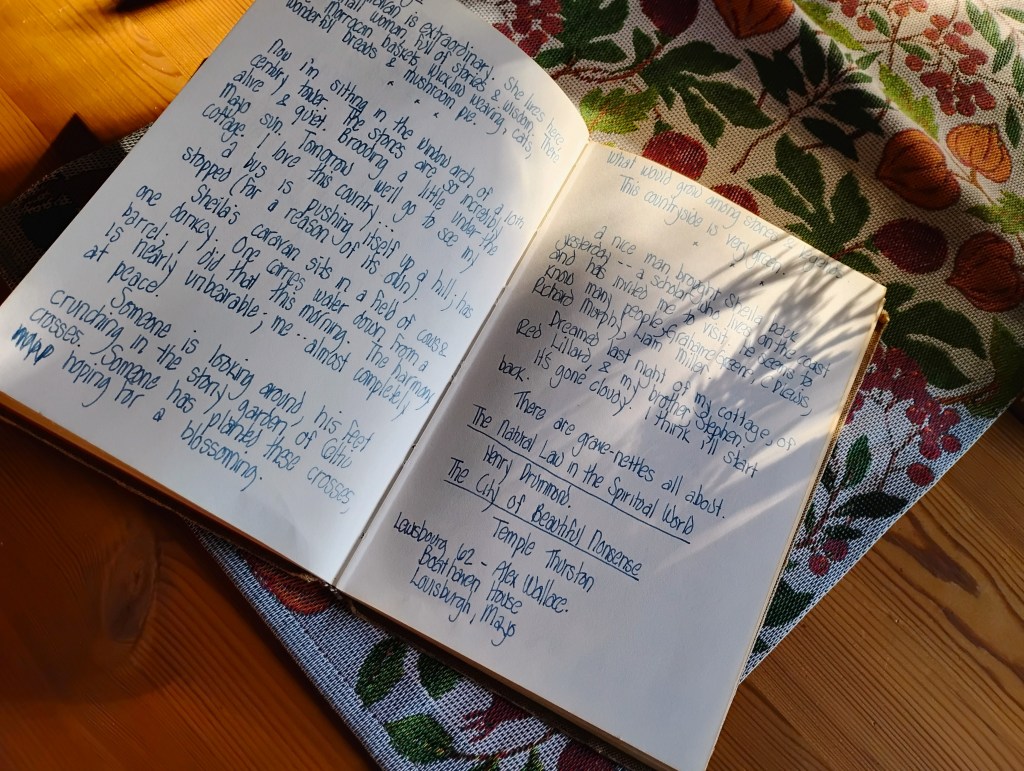 is extraordinary. She lives here,
small woman, full of stories & wisdom; there
Moroccan baskets, wicker weaving, cats,
wonderful breads & mushroom pie.
Now i'm sitting in the window arch of a 10th
century tower. The stones are so incredibly
alive & quiet. Brooding a little under the
Mayo sun. Tomorrow we'll go to see my
cottage. I love this country...
a bus is pushing itself up a hill; has
stopped (for a reason of its own).
Sheila's caravan sits in a field of cows &
one donkey. One carries water down from a
barrel: i did that this morning. The harmony
is nearly unbearable; me... almost completely
at peace.
Someone is looking around, his feet
crunching in the stony garden of Celtic
crosses. Someone has planted these crosses,
hoping for a blossoming.
what would grow among stones
This countryside is very green.
a nice man brought Sheila back
yesterday -- a scholar who lives on the coast
and has invited me to visit, i.e. seems to
know many people-Grahame Greene,
Richard Murphy,
Dreamed last night of my cottage of
Red Lillard, & my brother Stephen.
It's gone cloudy. I think i'll start
back.
There are grave-nettles all about.
The Natural Law in the Spiritual World
Henry Drummond.
The City of Beautiful Nonsense
Temple Thurston
Louisbourg 62 - Alex Wallace.
Boathaven House
Louisburgh, Mayo